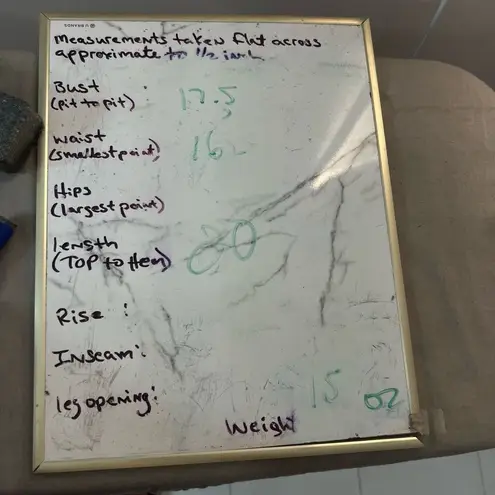 measurements taken flat across
approximate to 1/2 inch
Bust
(pit to pit) 17.5
waist
(smallest point) 16
Hips
(largest point)
length
(TOP to Hem) 20
Rise :
Inseam:
leg opening: 15 oz
Weight